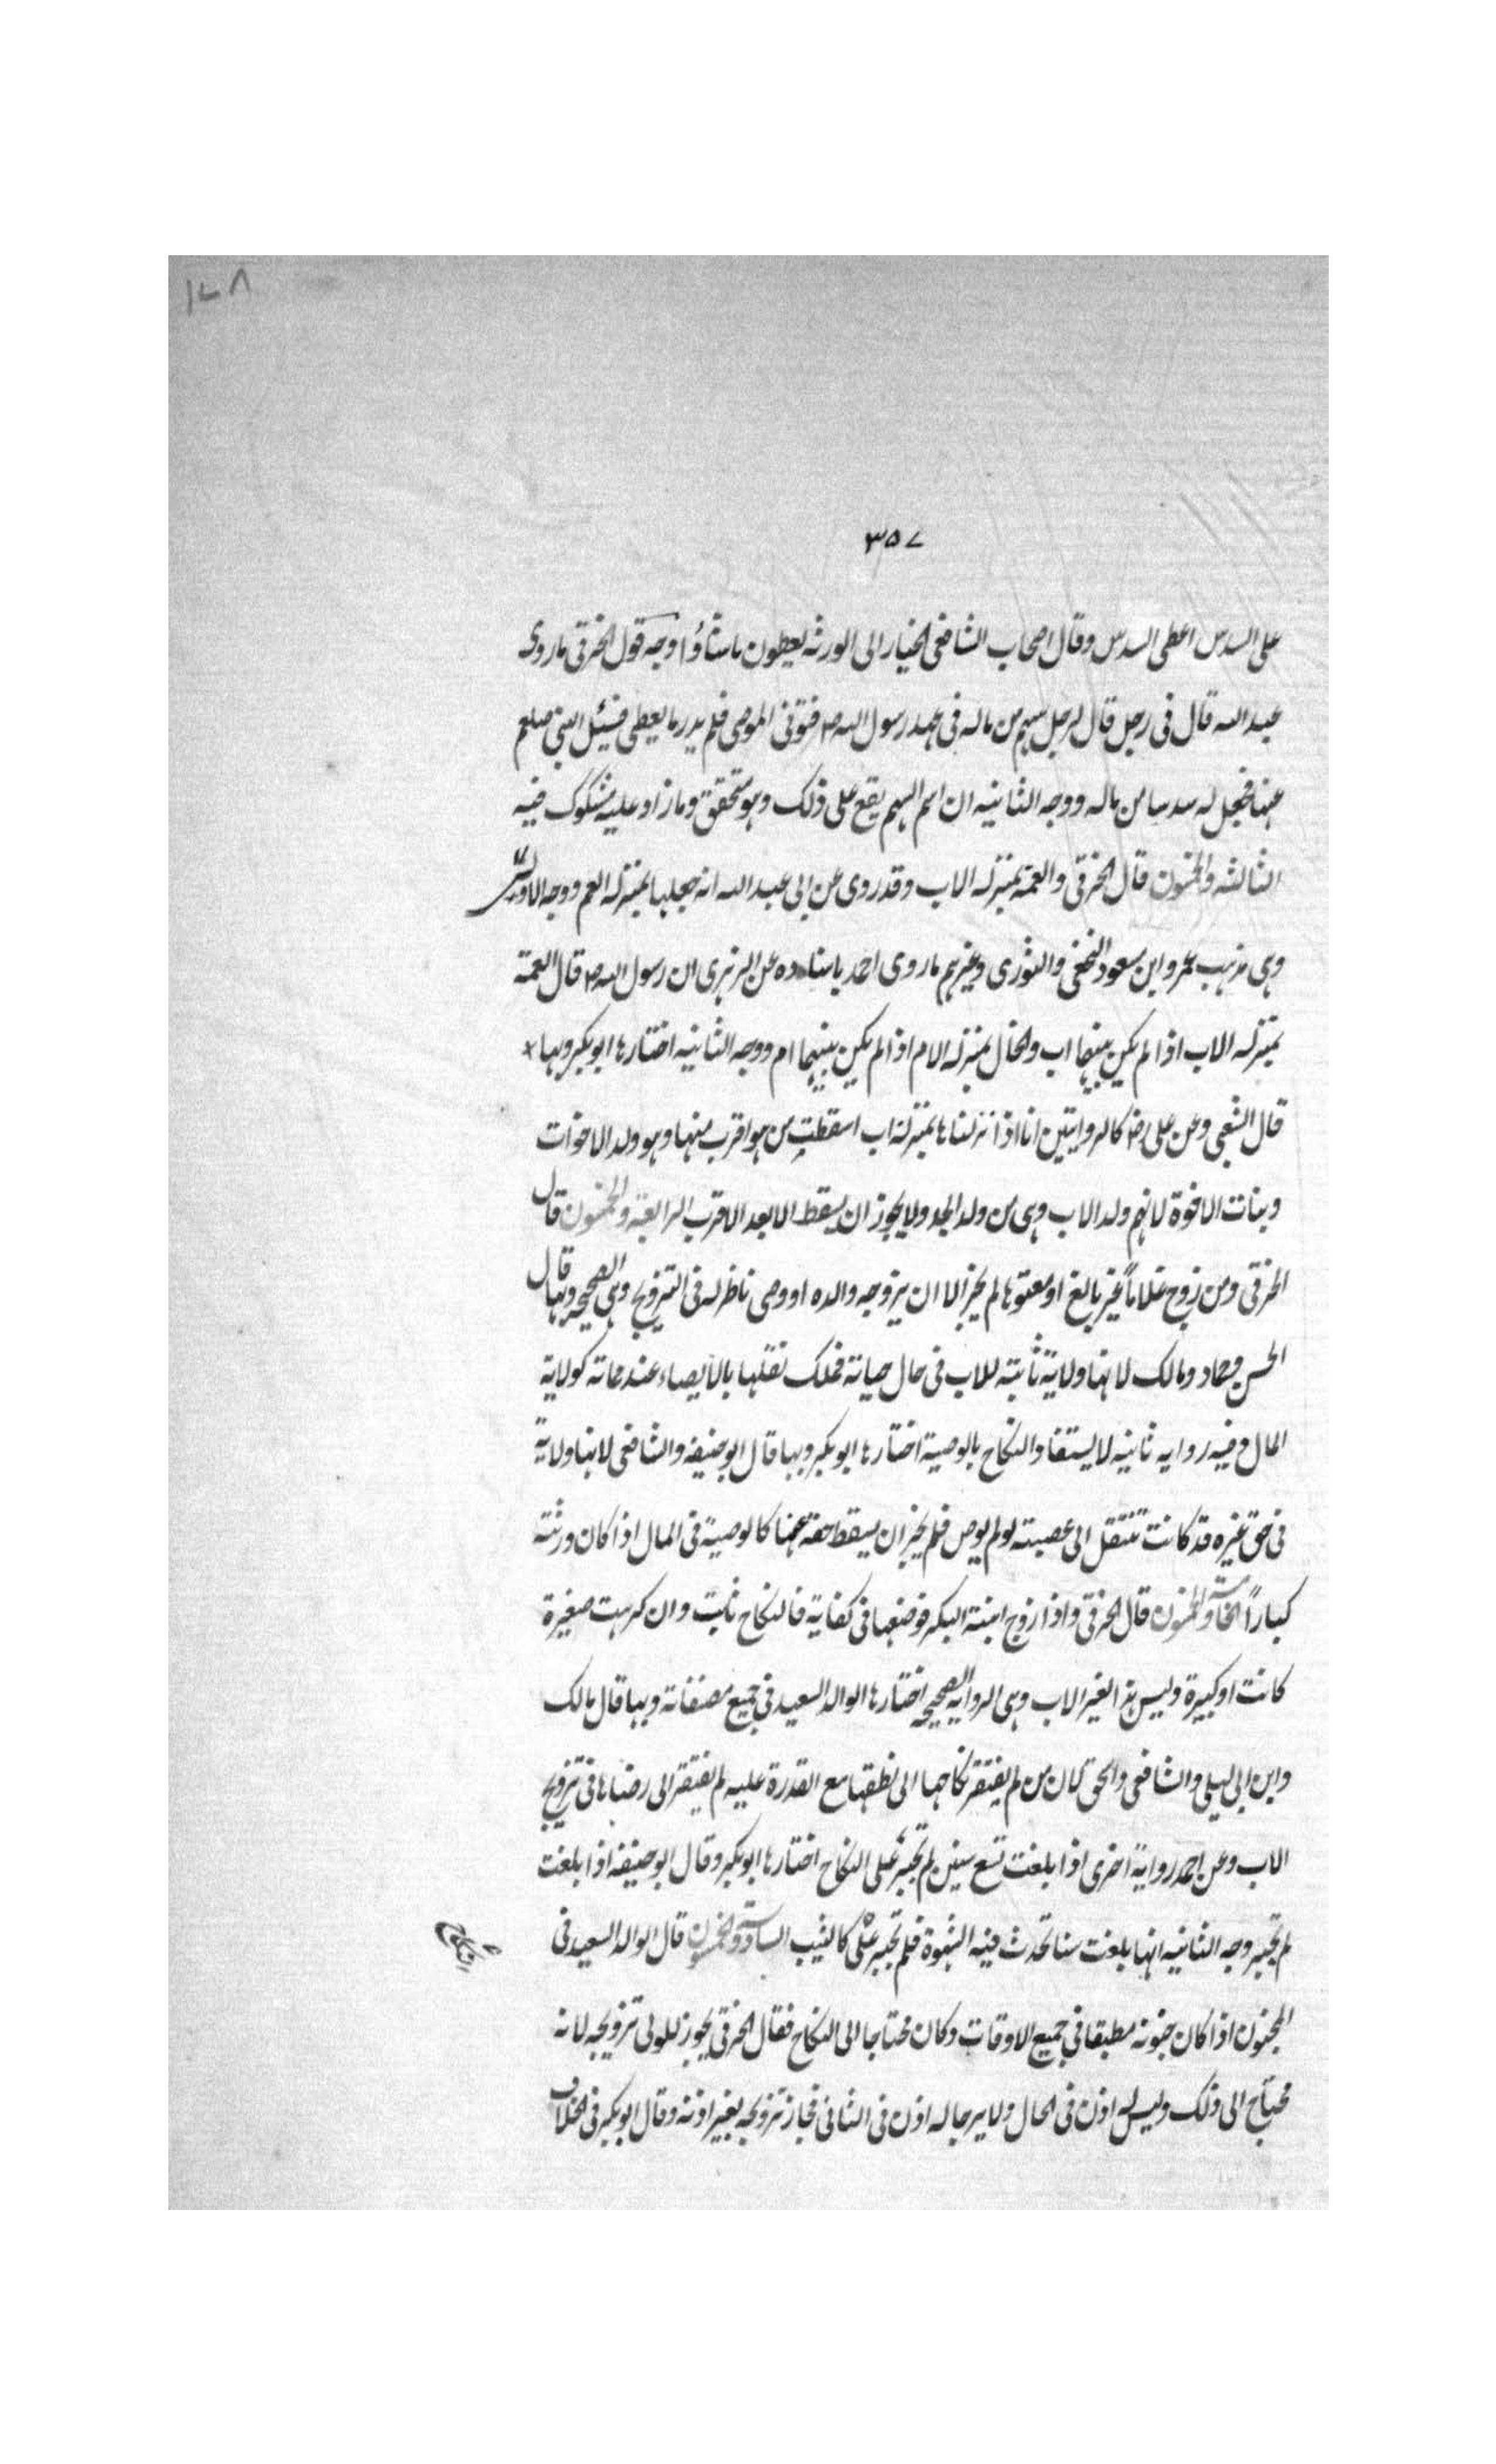 ١٧٨
٣٥٧
على السدس اعطى السدس وقال اصحاب الشافعى الخيار الى الورثه يعطون ماشاؤا وجه قول الخرقى ماروى
عبدالله قال فى رجل قال لرجل سهم من ماله فى عهد رسول الله ص فتوفى الموصى فلم يدر ما يعطى فسئل النبى صلعم
عنها فجعل له سدسا من ماله ووجه الثانيه ان اسم السهم يقع على ذلك وهو متحقق وما زاد عليه مشكوك فيه
الثالثه والخمسون قال الخرقى والعمة بمنزله الاب وقد روى عن ابى عبدالله انه جعلها بمنزله العم ووجه الاولى
وهى مذهب عمر وابن مسعود النخعى والثورى وغيرهم ماروى احمد باسناده عن الزهرى ان رسول الله ص قال العمة
بمنزله الاب اذا لم يكن بينهما اب والخال بمنزله الام اذا لم يكن بينهما ام ووجه الثانيه اختارها ابوبكر وبها
قال الشعبى وعن على رض كالروايتين انا اذا نزلناها بمنزلة اب اسقطت من هو اقرب منها وهو ولد الاخوات
وبنات الاخوة لانهم ولد الاب وهى من ولد الجد ولايجوز ان يسقط الابعد الاقرب الرابعة والخمسون قال
الخرقى ومن زوج غلاماً غير بالغ او معتوها لم يجز الا ان يزوجه والده او وصى ناظر له فى التزويج وهى الصحيحه وبها قال
الحسن وحماد ومالك لانها ولاية ثابتة للاب فى حال حياته فملك نقلها بالايصاء عند مماته كولاية
المال وفيه روايه ثانيه لايستفاد النكاح بالوصية اختارها ابوبكر وبها قال ابوحنيفه والشافعى لانها ولاية
فى حق غيره قد كانت تنتقل الى عصبته لو لم يوص فلم يجز ان يسقط حقه عنها كالوصية فى المال اذا كان ورثته
كباراً الخامسة والخمسون قال الخرقى واذا زوج ابنته البكر فوضعها فى كفاية فالنكاح ثابت وان كرهت صغيرة
كانت او كبيرة وليس هذا لغير الاب وهى الروايه الصحيحه اختارها الوالد السعيد فى جميع مصنفاته وبها قال مالك
وابن ابى ليلى والشافعى واسحق لان من لم يفتقر نكاحها الى نطقها مع القدرة عليه لم يفتقر الى رضاها فى تزويج
الاب وعن احمد رواية اخرى اذا بلغت تسع سنين لم تجبر على النكاح اختارها ابوبكر وقال ابوحنيفه اذا بلغت
لم تجبر وجه الثانيه انها بلغت سنا تحدث فيه الشهوة فلم تجبر على كالثيب السادسة والخمسون قال الوالد السعيد فى
النكاح
المجنون اذا كان جنونه مطبقا فى جميع الاوقات وكان محتاجا الى النكاح فقال الخرقى يجوز للولى تزويجه لانه
محتاج الى ذلك وليس له اذن فى الحال ولا يرجا له اذن فى الثانى فجاز تزويجه بغير اذنه وقال ابوبكر فى الخلاف